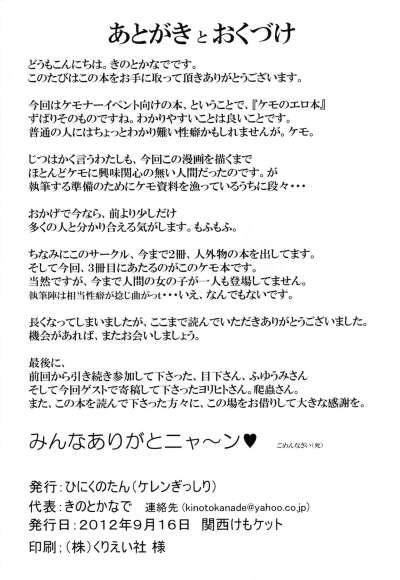 あとがきとおくづけ
どうもこんにちは。きのとかなでです。
このたびはこの本をお手に取って頂きありがとうございます。
今回はケモナーイベント向けの本、ということで、『ケモのエロ本』
ずばりそのものですね。わかりやすいことは良いことです。
普通の人にはちょっとわかり難い性癖かもしれませんが。ケモ。
じつはかく言うわたしも、今回この漫画を描くまで
ほとんどケモに興味関心の無い人間だったのです。が
執筆する準備のためにケモ資料を漁っているうちに段々・・・
おかげで今なら、前より少しだけ
多くの人と分かり合える気がします。もふもふ。
ちなみにこのサークル、今まで2冊、人外物の本を出してます。
そして今回、3冊目にあたるのがこのケモ本です。
当然ですが、今まで人間の女の子が一人も登場してません。
執筆陣は相当性癖が捻じ曲がっt・・・いえ、なんでもないです。
長くなってしまいましたが、ここまで読んでいただきありがとうございました。
機会があれば、またお会いしましょう。
最後に、
前回から引き続き参加して下さった、目下さん、ふゆうみさん
そして今回ゲストで寄稿して下さったヨリヒトさん。爬蟲さん。
また、この本を読んで下さった方々に、この場をお借りして大きな感謝を。
みんなありがとニャ～ン♥ ごめんなさい(死)
発行：ひにくのたん（ケレンぎっしり）
代表：きのとかなで 連絡先（kinotokanade@yahoo.co.jp）
発行日：2012年9月16日 関西けもケット
印刷；（株）くりえい社 様